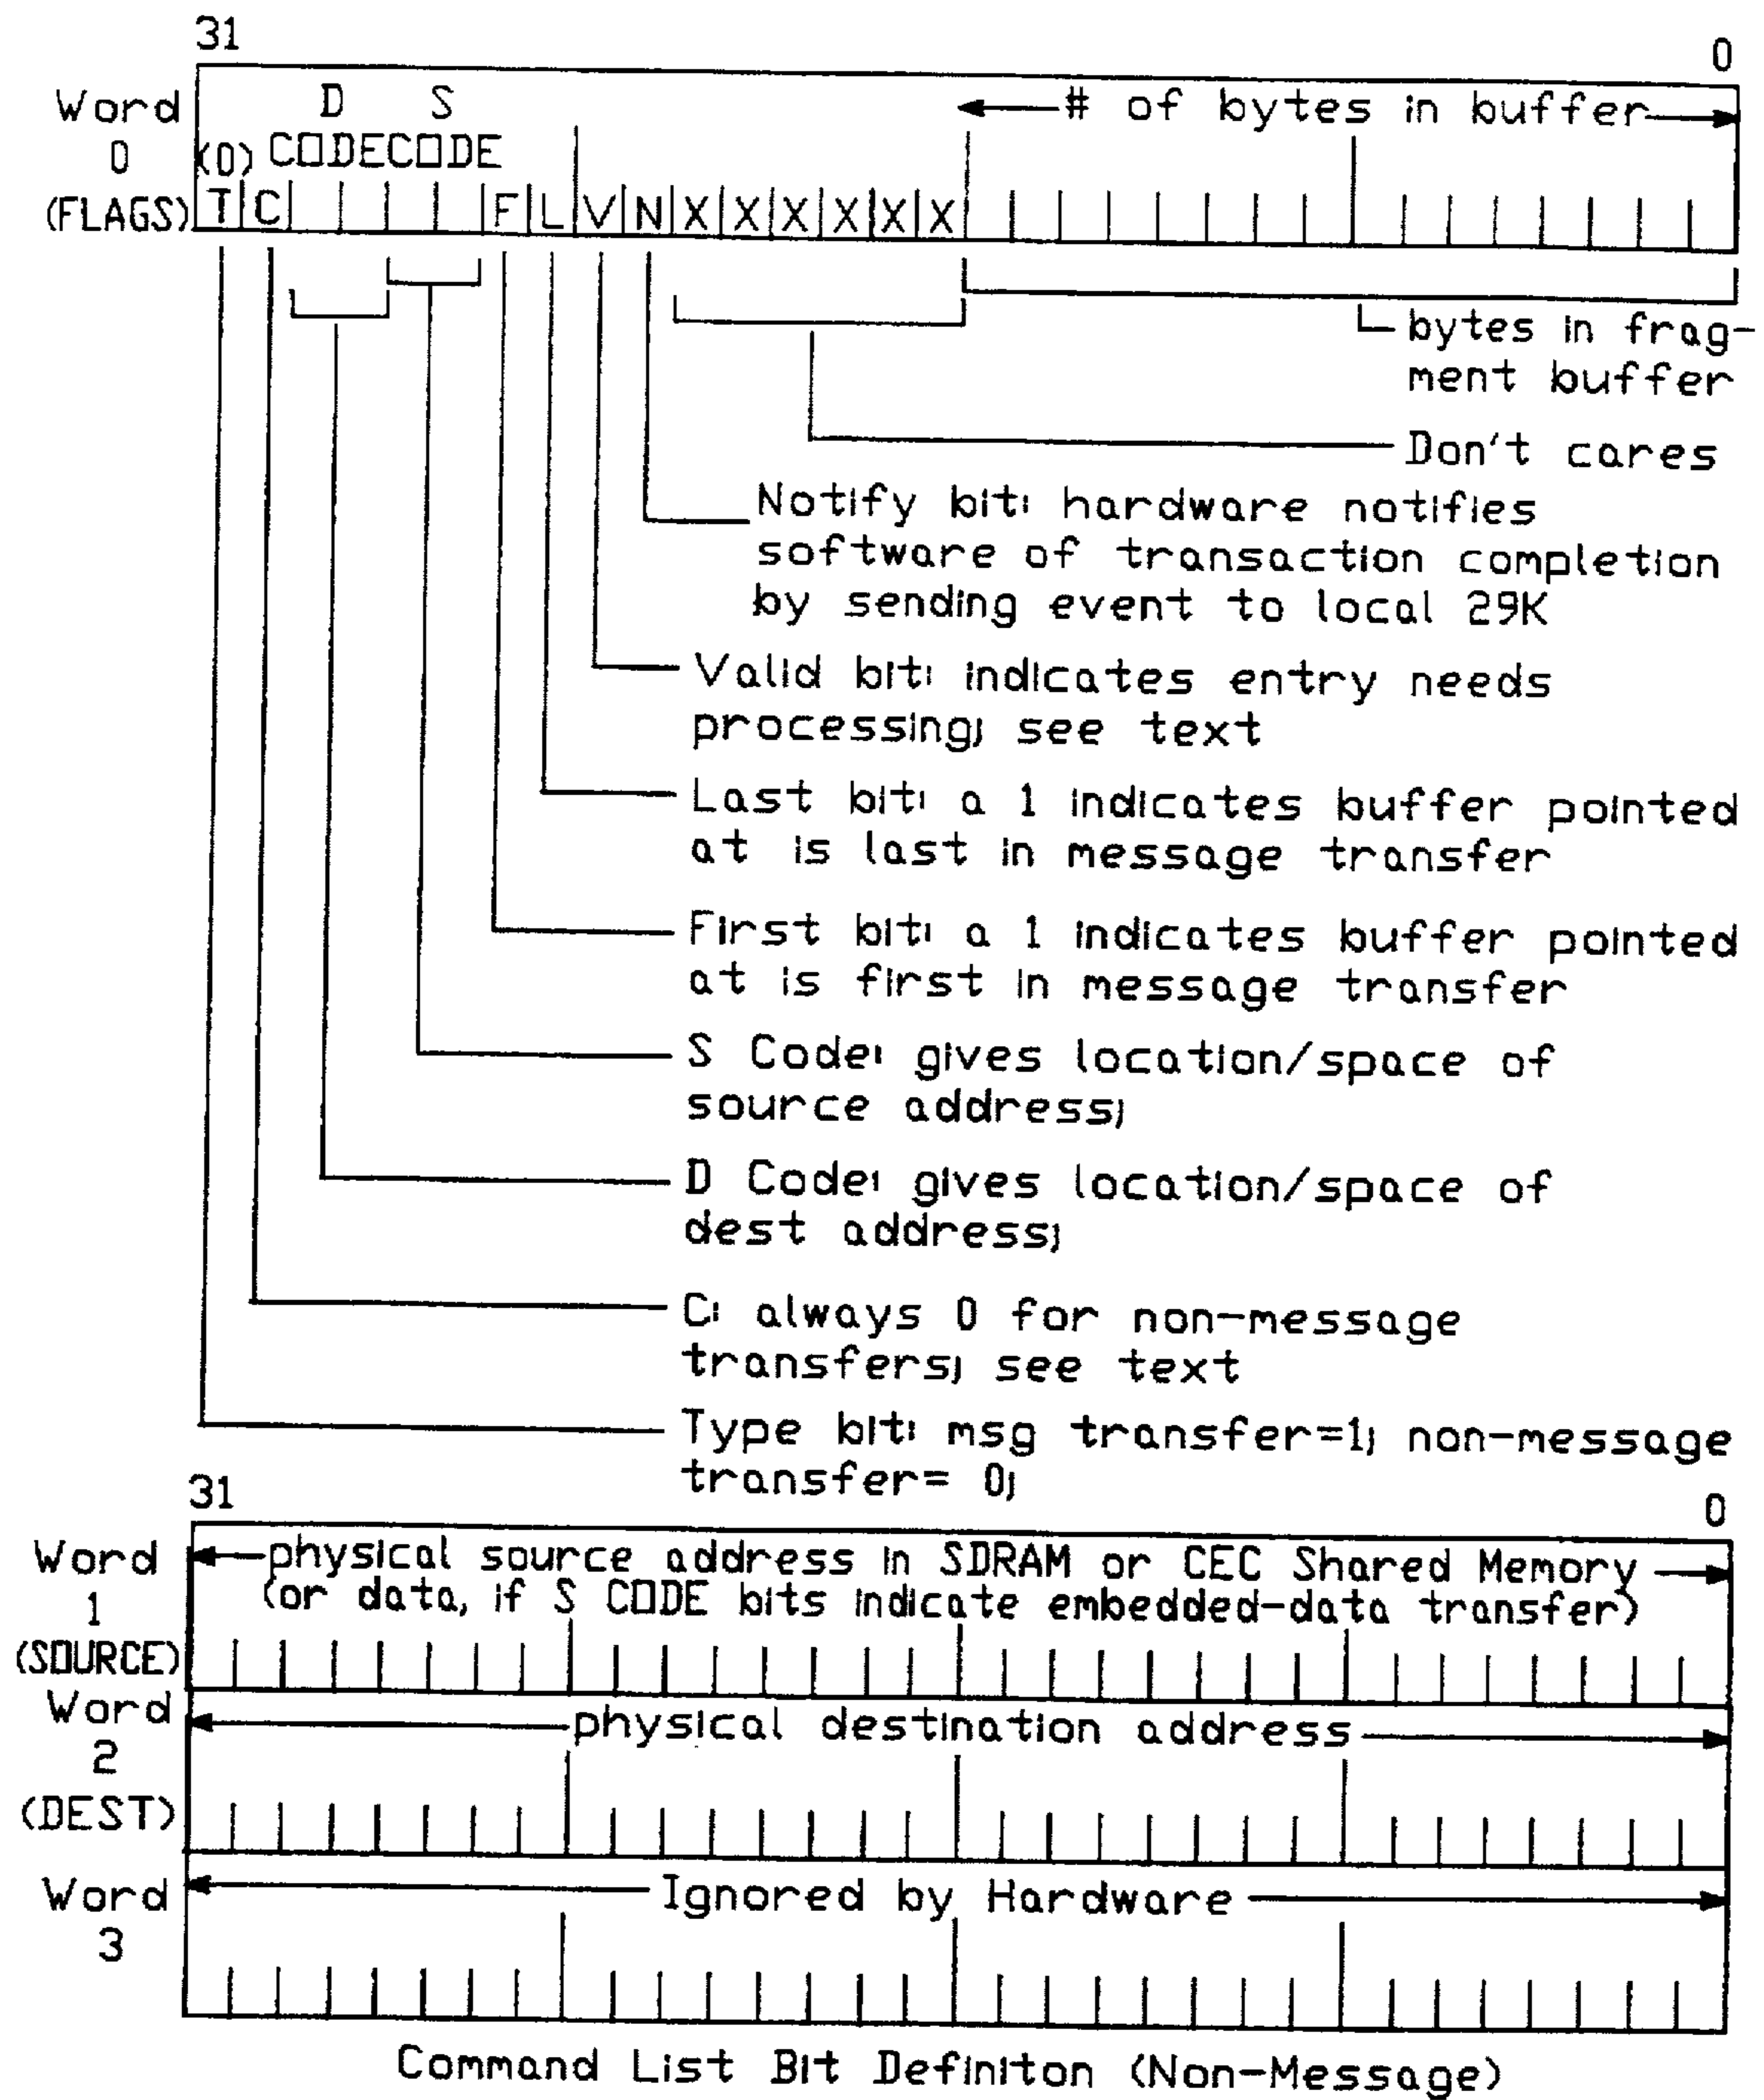 31 0
Word D S # of bytes in buffer
0 (0) CODE CODE
(FLAGS) T C F L V N X X X X X X
bytes in frag-
ment buffer
Don't cares
Notify bit: hardware notifies
software of transaction completion
by sending event to local 29K
Valid bit: indicates entry needs
processing; see text
Last bit: a 1 indicates buffer pointed
at is last in message transfer
First bit: a 1 indicates buffer pointed
at is first in message transfer
S Code: gives location/space of
source address;
D Code: gives location/space of
dest address;
C: always 0 for non-message
transfers; see text
Type bit: msg transfer=1; non-message
transfer= 0;
31 0
Word physical source address in SDRAM or CEC Shared Memory
1 (or data, if S CODE bits indicate embedded-data transfer)
(SOURCE)
Word physical destination address
2
(DEST)
Word Ignored by Hardware
3
Command List Bit Definiton (Non-Message)